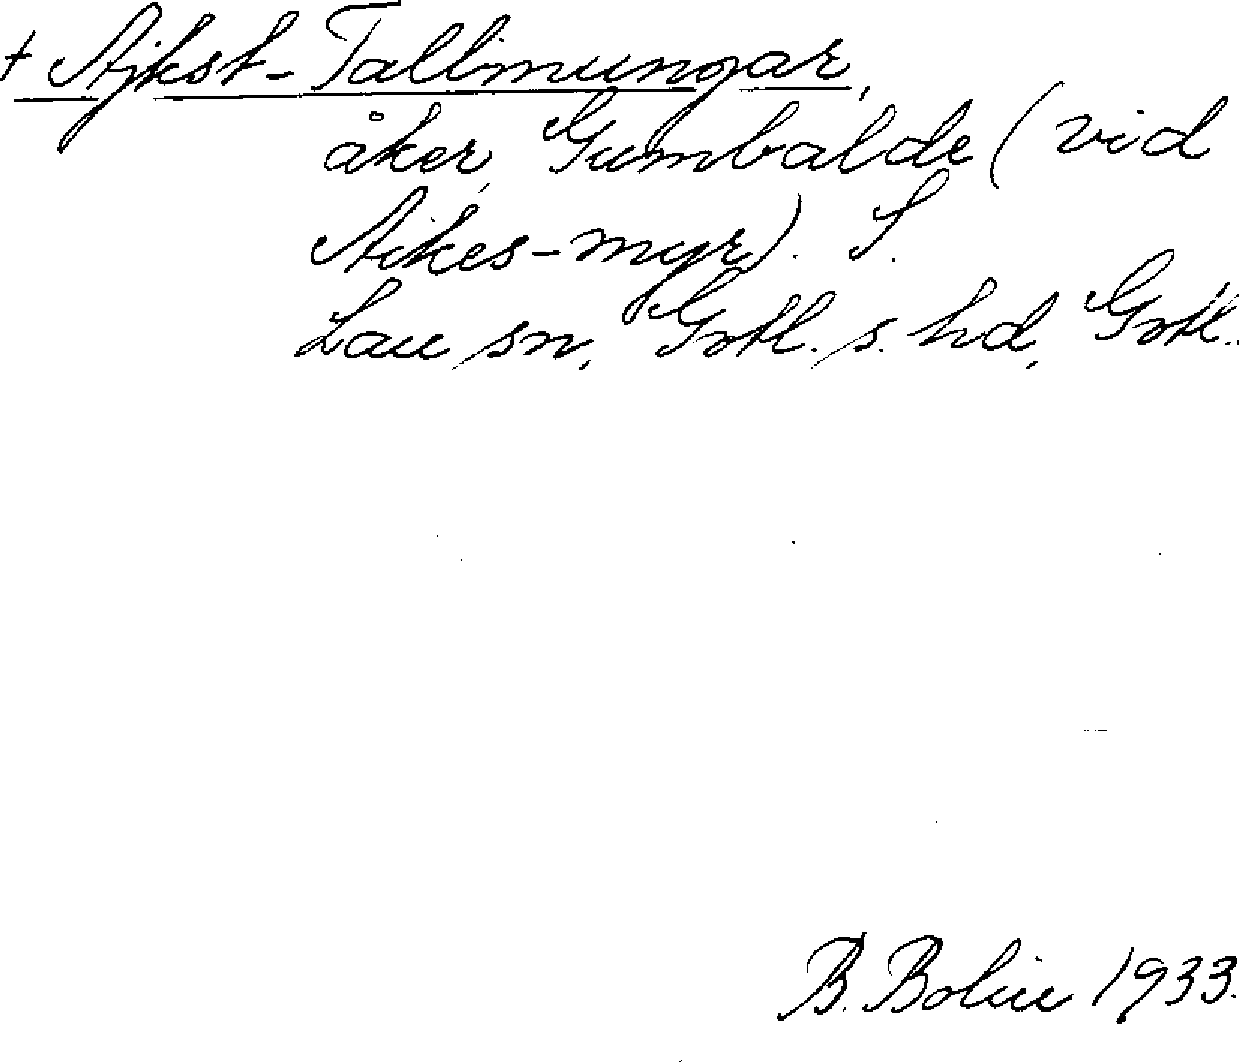 + Ajkst-Tallmungar,
åker, Gumbalde (vid
Aikes-myr). S.
Lau sn, Gotl. s. hd, Gotl.
B. Bolin 1933.